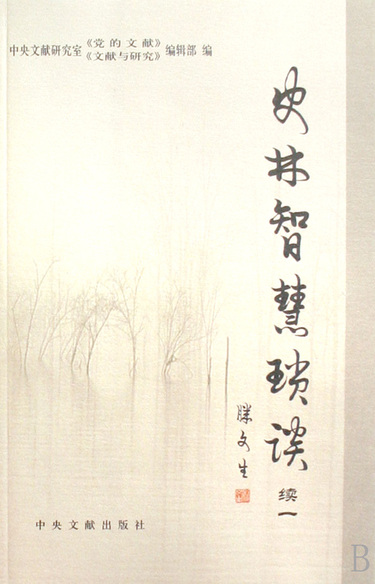 中央文献研究室
《党的文献》
《文献与研究》
编辑部 编
史林智慧琐谈
续一
滕文生
中央文献出版社
B